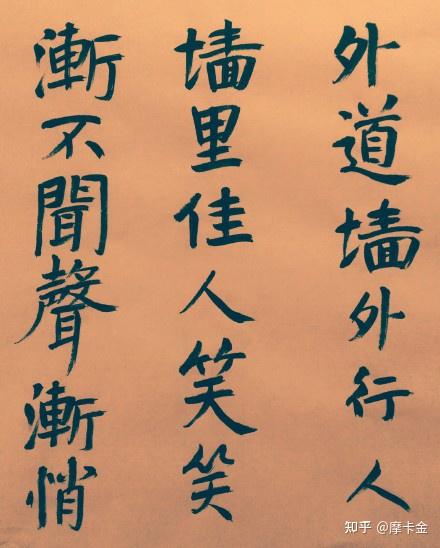 外道墙外行人
墙里佳人笑笑
漸不聞聲漸悄
知乎 @摩卡金